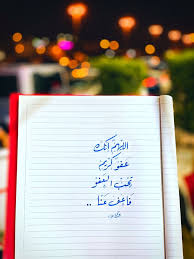 اللهم إنك
عفو كريم
تحب العفو
فاعف عنا ..